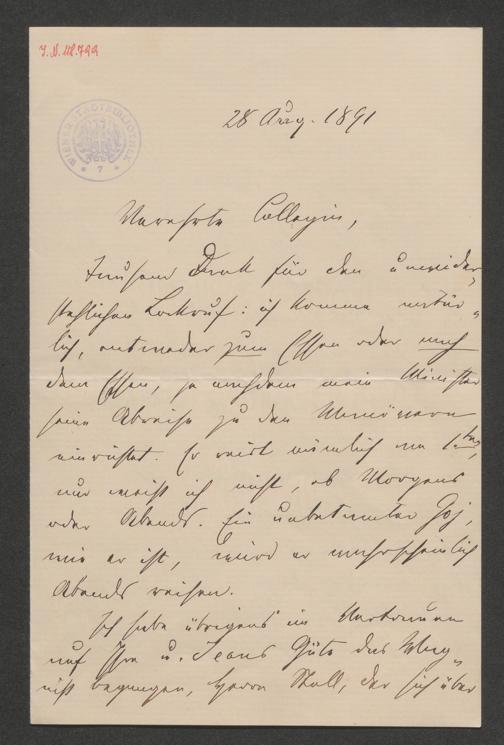 J. N. III. 799
WIENER STADTBIBLIOTHEK
7
28 Aug. 1891
Verehrte Collegin,
Tausend Dank für den unwider-
stehlichen Lockruf: ich komme natür-
lich, entweder zum Essen oder nach
dem Essen, je nachdem mein Minister
seine Abreise zu den Manövern
einrichtet. Er reist nämlich am 1ten,
nur weiß ich nicht, ob Morgens
oder Abends. Ein Goj,
wie er ist, wird er wahrscheinlich
Abends reisen.
Ich habe übrigens im Vertrauen
auf Ihre u. Jeans Güte das Wag-
niß begangen, Herrn Stoll, der sich über